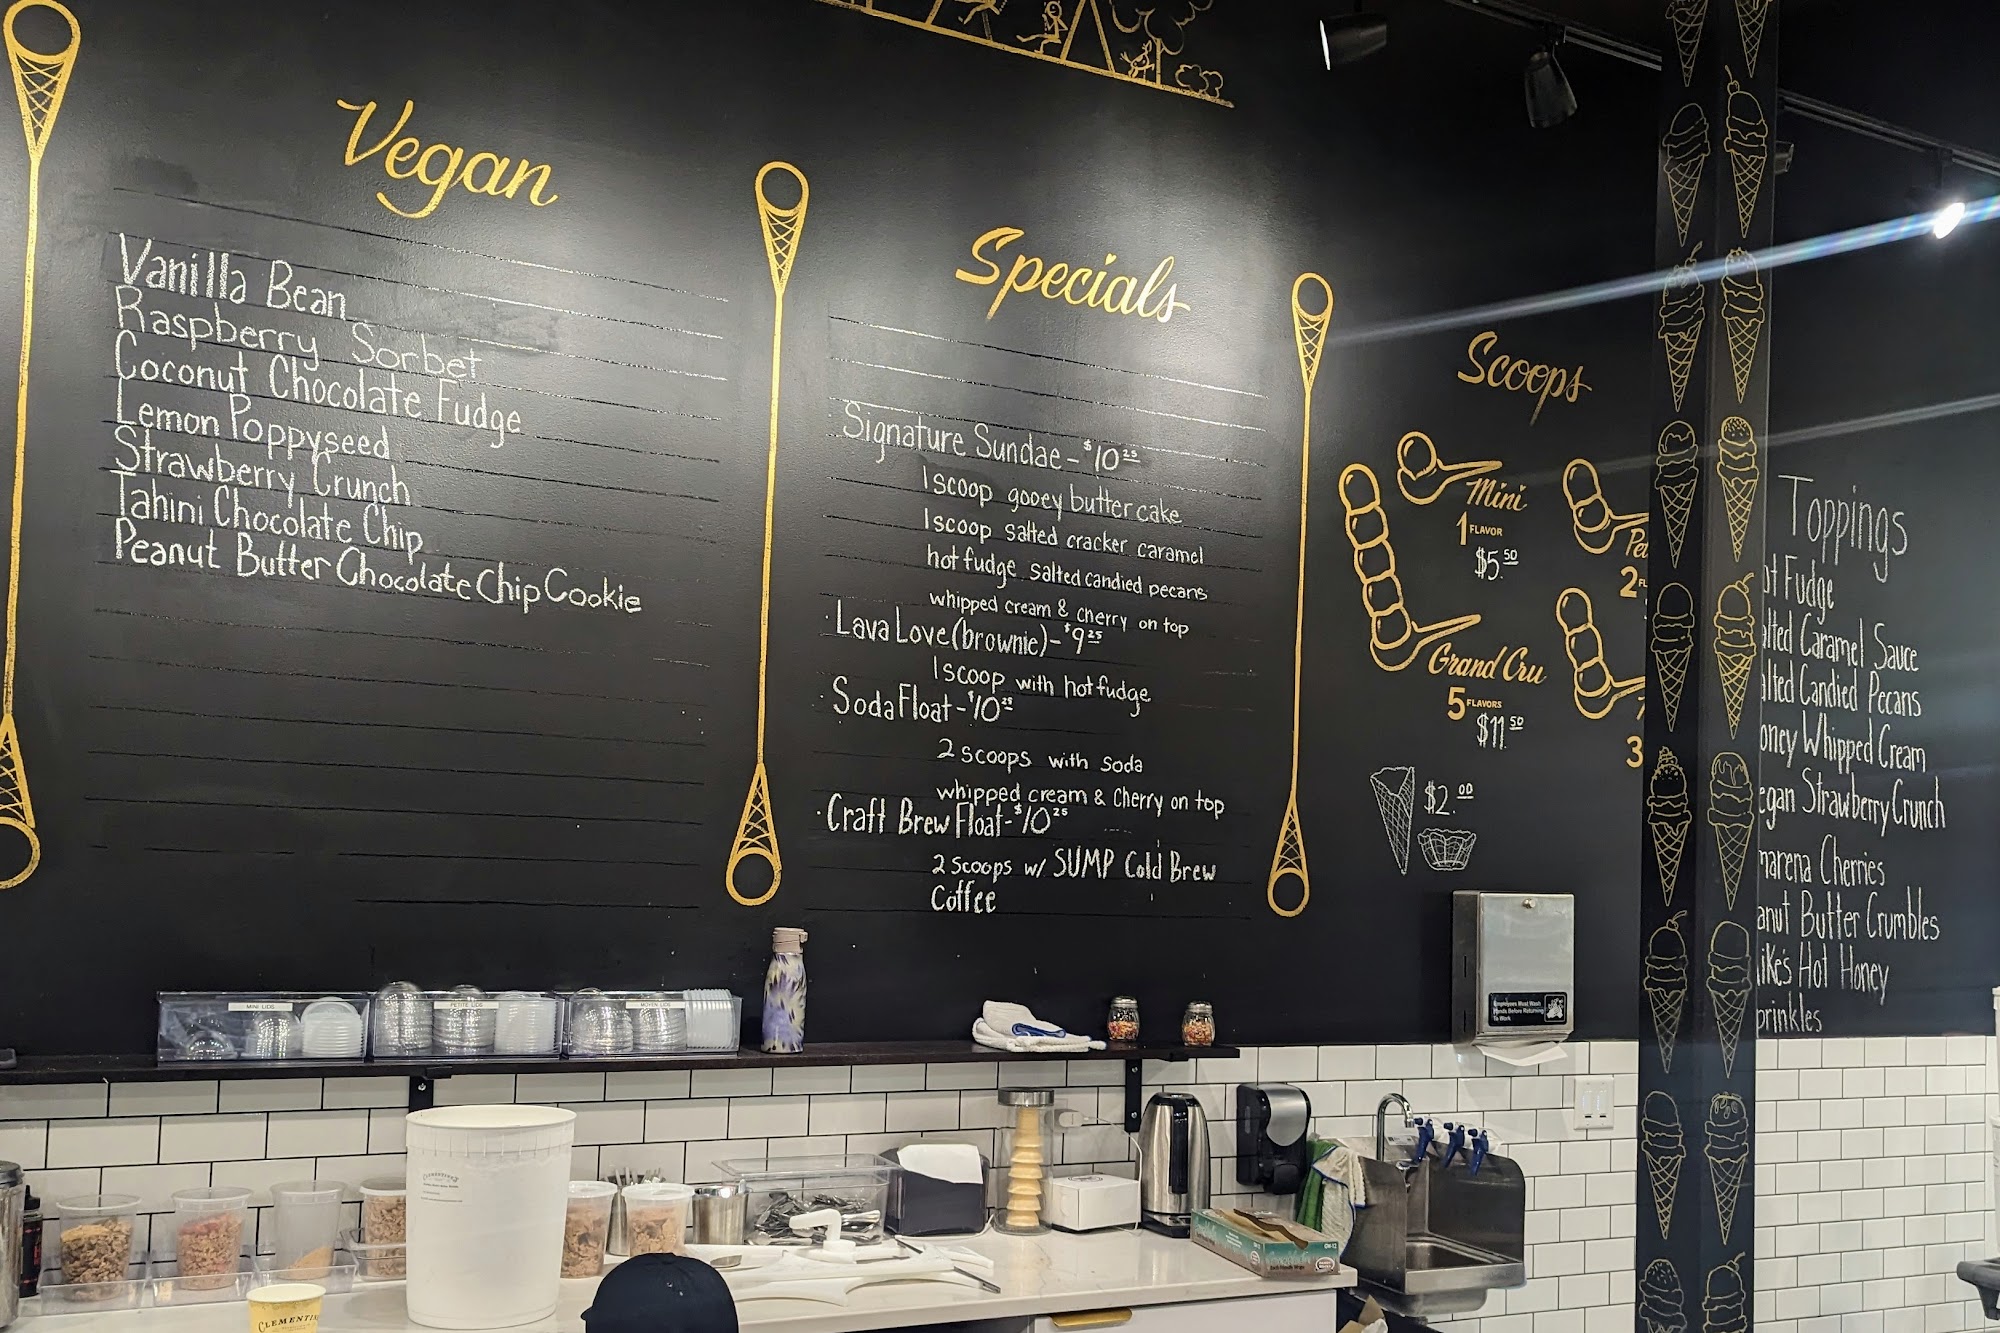 Vegan
Vanilla Bean
Raspberry Sorbet
Coconut Chocolate Fudge
Lemon Poppyseed
Strawberry Crunch
Tahini Chocolate Chip
Peanut Butter Chocolate Chip Cookie
Specials
· Signature Sundae - $10 25
1 scoop gooey butter cake
1 scoop salted cracker caramel
hot fudge salted candied pecans
whipped cream & cherry on top
· Lava Love (brownie) - $9 25
1 scoop with hot fudge
· Soda Float - $10 25
2 scoops with soda
whipped cream & Cherry on top
· Craft Brew Float - $10 25
2 scoops w/ SUMP Cold Brew
Coffee
Scoops
Mini
1 FLAVOR
$5.50
Pe
2 FL
Grand Cru
5 FLAVORS
$11.50
3
$2.00
Toppings
ot Fudge
alted Caramel Sauce
alted Candied Pecans
oney Whipped Cream
egan Strawberry Crunch
marena Cherries
anut Butter Crumbles
ike's Hot Honey
prinkles
MINI LIDS
PETITE LIDS
MOYEN LIDS
Employees Must Wash
Hands Before Returning
To Work
CLEMENTI